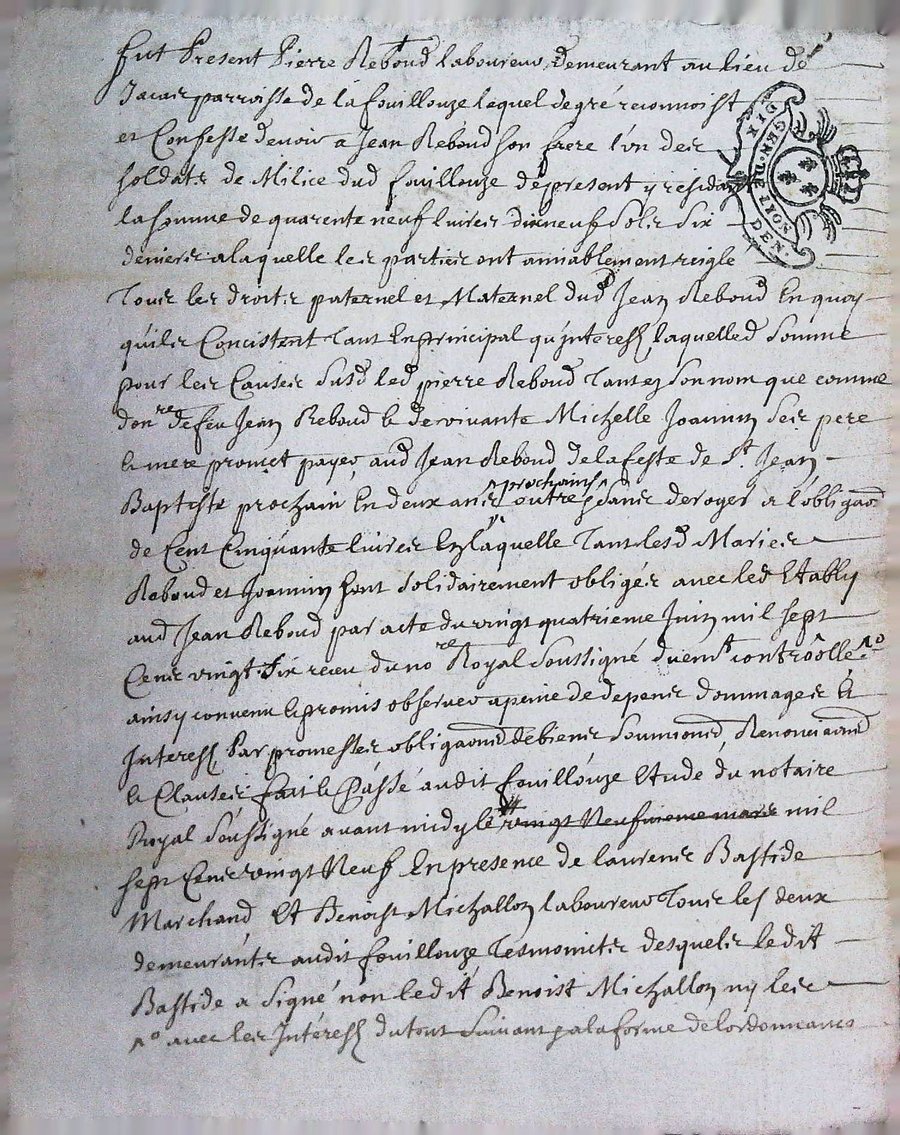 fut Present Pierre Reboud laboureur, demeurant au lieu de
Jacas parroisse de la fouillouze lequel de gré reconnoist
et Confesse devoir a Jean Reboud son frere l'un des
soldats de Milice dud fouillouze de present y residant
la somme de quarente neuf livres dixneuf sols six
deniers a laquelle les parties ont amiablement reigle
Tous les droits paternel et Maternel dud Jean Reboud En quoy
quils Concistent Tant En principal qu'interest laquelled somme
pour les Causes susd led pierre Reboud Tant en son nom que comme
donre de feu Jean Reboud & de vivante Michelle Joannin ses pere
& mere promet payer aud Jean Reboud de la feste de St. Jean
Baptiste prochain En deux ans prochains outre & sans deroger a l'obligaon
de Cent Cinquante livres En laquelle Tant lesd Maries
Reboud et Joannin sont solidairement obligés avec led Etably
aud Jean Reboud par acte du vingt quatrieme Juin mil sept
Cens vingt six receu du nore Royal soussigné duemt controôllé. ro
ainsy convenu & promis observer a peine de depens dommages &
Interest Par promesses obligaons de biens soumions, Renonciaons
& Clauses fait & Passé audit fouillouze Etude du notaire
Royal soussigné avant midy le vingt Neufvieme mars mil
sept Cens vingt Neuf En presence de laurens Bastide
Marchand, Et Benoist Michallon laboureur Tous les deux
demeurants audit fouillouze Tesmoints desquels ledit
Bastide a signé non ledit Benoist Michallon ny les
ro avec les Intérest du tout suivant la forme de lordonnance
GEN. DE LYON
DIX DEN.